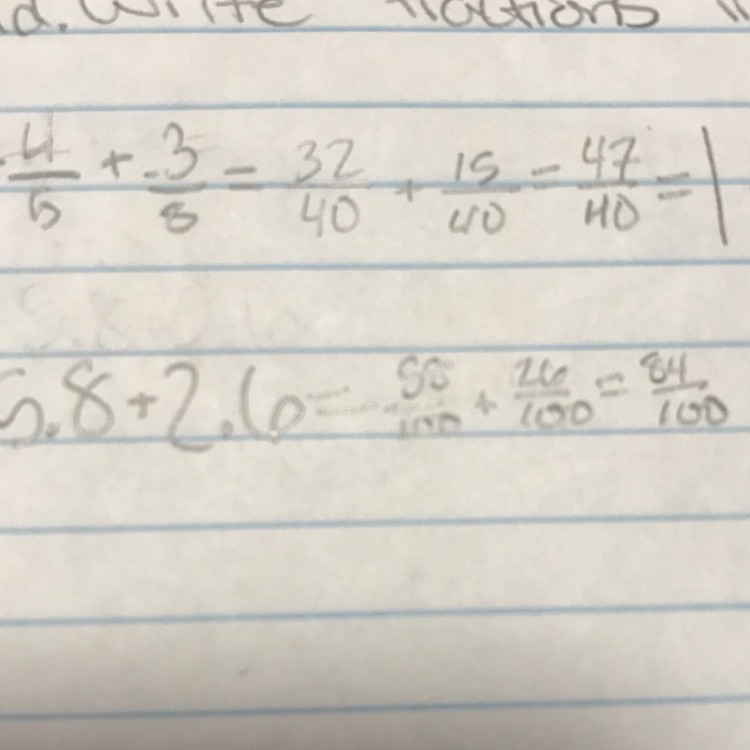 d. Write fractions
4/5 + 3/8 = 32/40 + 15/40 = 47/40 = 1
5.8 + 2.6 = 58/100 + 26/100 = 84/100